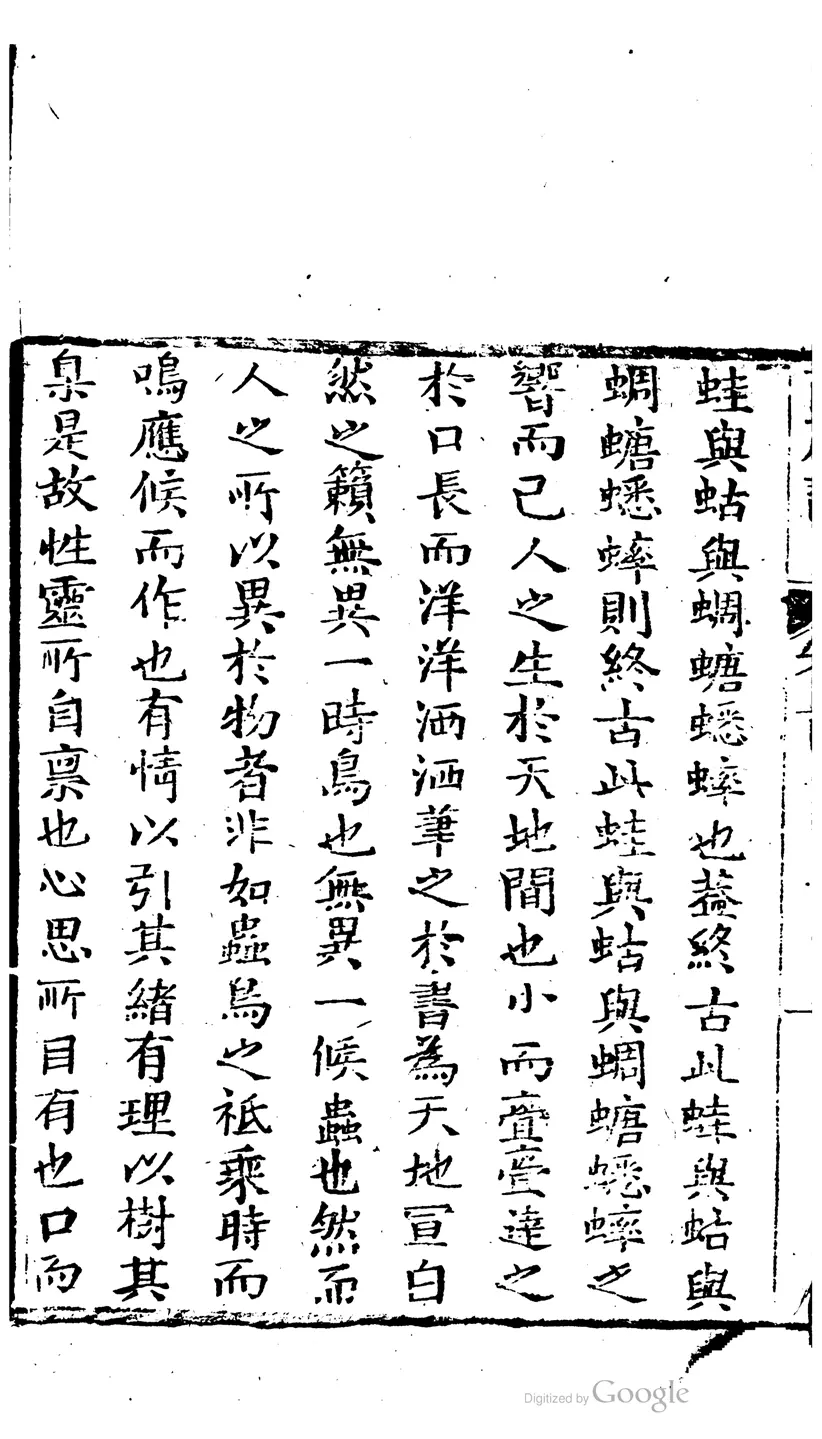 蛙與蛄與蜩螗蟋蟀也葢終古此蛙與蛄與
蜩螗蟋蟀則終古此蛙與蛄與蜩螗蟋蟀之
響而已人之生於天地間也小而亹亹達之
於口長而洋洋洒洒筆之於書為天地宣白
然之籟無異一時鳥也無異一候蟲也然而
人之所以異於物者非如蟲鳥之祗乘時而
鳴應候而作也有情以引其緒有理以樹其
臬是故性靈所自禀也心思所自有也口而
Digitized by Google